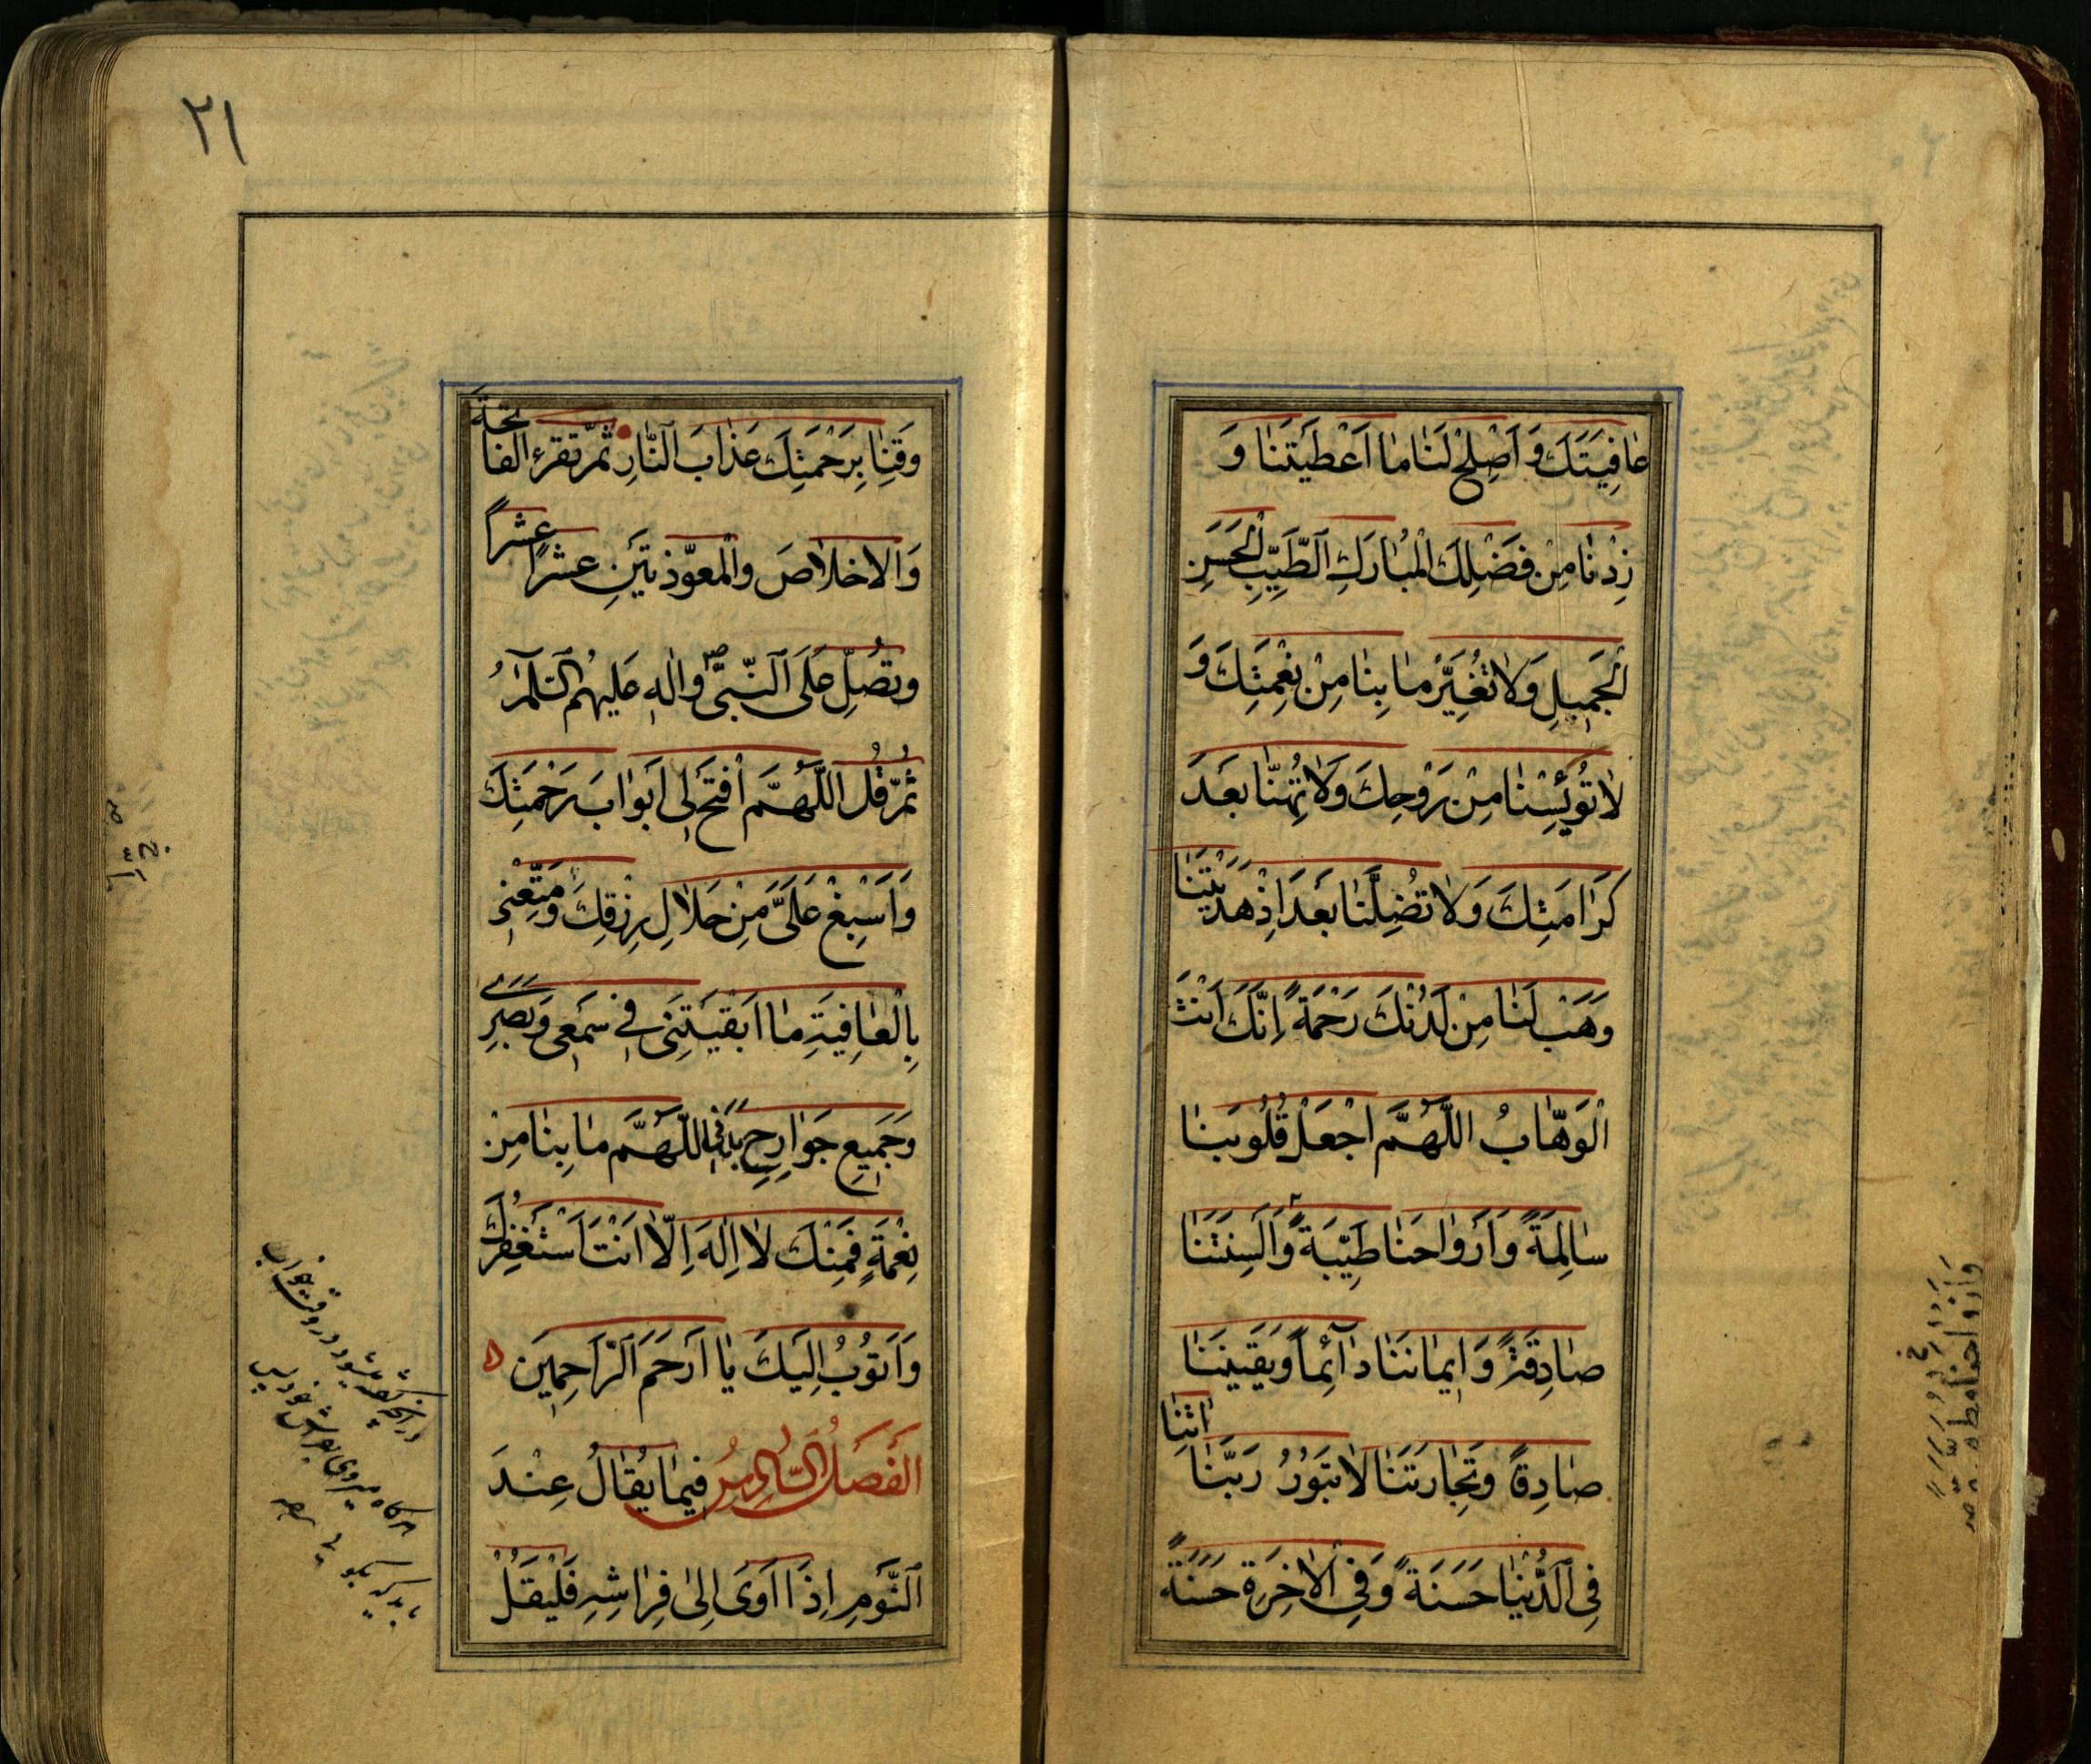 عٰافِيَتَكَ وَ اَصْلِحْ لَنٰا مٰا اَعْطَيْتَنٰا وَ
زِدْنٰا مِنْ فَضْلِكَ الْمُبٰارَكِ الطَّيِّبِ الْحَسَنِ
الْجَمِيلِ وَلاٰ تُغَيِّرْ مٰا بِنٰا مِنْ نِعْمَتِكَ وَ
لاٰ تُؤْيِسْنٰا مِنْ رَوْحِكَ وَلاٰ تُهِنّٰا بَعْدَ
كَرٰامَتِكَ وَلاٰ تُضِلَّنٰا بَعْدَ اِذْ هَدَيْتَنٰا
وَهَبْ لَنٰا مِنْ لَدُنْكَ رَحْمَةً اِنَّكَ اَنْتَ
الْوَهّٰابُ اللّٰهُمَّ اجْعَلْ قُلُوبَنٰا
سٰالِمَةً وَ اَرْوٰاحَنٰا طَيِّبَةً وَ اَلْسِنَتَنٰا
صٰادِقَةً وَ اِيمٰانَنٰا دٰآئِماً وَ يَقِينَنٰا
صٰادِقاً وَ تِجٰارَتَنٰا لاٰ تَبُورُ رَبَّنٰا اٰتِنٰا
فِى الدُّنْيٰا حَسَنَةً وَ فِى الْاٰخِرَةِ حَسَنَةً
وَاَرْوٰاحَنٰا
٢١
وَقِنٰا بِرَحْمَتِكَ عَذٰابَ النّٰارِ ثُمَّ تقرء الفاتحة
وَالاخلاٰصَ والْمعوّذتَينِ عشراً عشراً
وتُصَلِّ عَلَى النَّبىّ ص واٰلهِ عَليهمُ السَّلٰمُ
ثُمَّ قُل اللّٰهُمَّ افْتَحْ لى اَبْوٰابَ رَحْمَتِكَ
وَاَسْبِغْ عَلَىَّ مِنْ حَلاٰلِ رِزْقِكَ وَمَتِّعْنى
بِالْعٰافِيَةِ مٰا اَبْقَيْتَنِى فى سَمْعى وَبَصَرى
وَجَمِيعِ جَوٰارِحِ بَدَنى اللّٰهُمَّ مٰا بِنٰا مِنْ
نِعْمَةٍ فَمِنْكَ لاٰ اِلٰهَ اِلّاٰ اَنْتَ اَسْتَغْفِرُكَ
وَاَتُوبُ اِلَيْكَ يٰا اَرْحَمَ الرّٰاحِمِينَ ۵
الفَصلُ السّادِسُ فيمٰا يُقٰالُ عِنْدَ
النَّومِ اِذَا اَوَى اِلىٰ فِرٰاشِهِ فَلْيَقُلْ